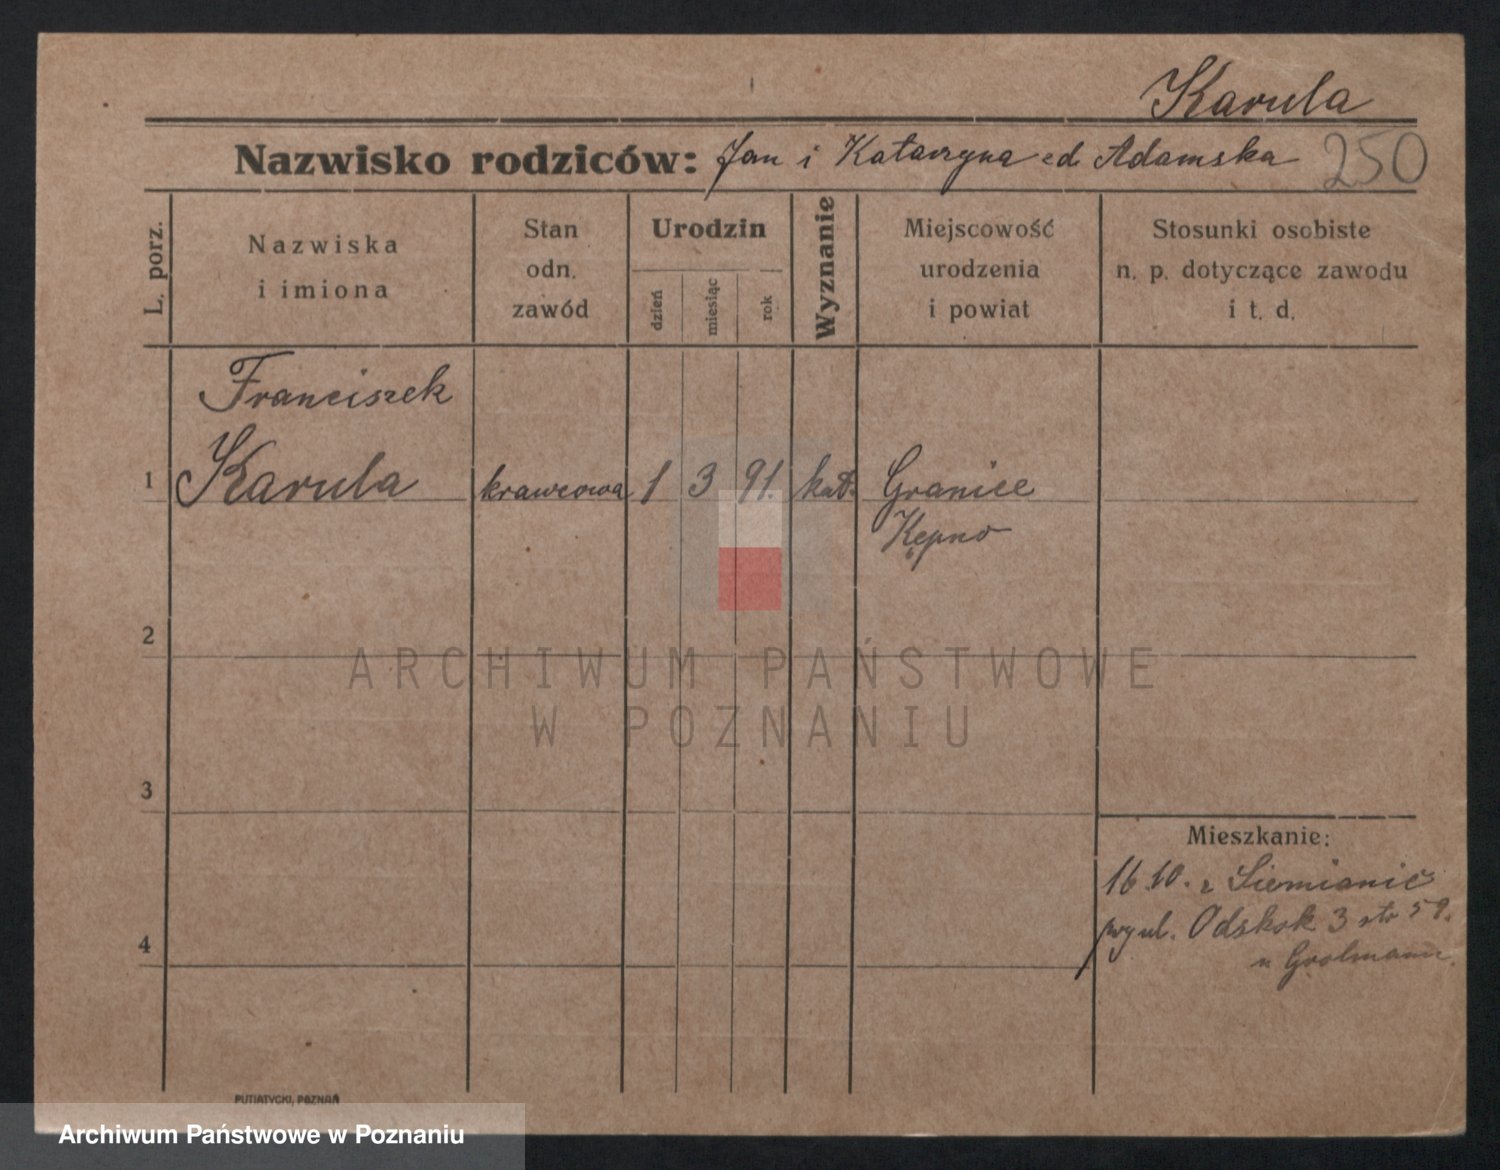 Karula
Nazwisko rodziców: Jan i Katarzyna ed Adamska 250
L. porz.
Nazwiska
i imiona
Stan
odn.
zawód
Urodzin
dzień
miesiąc
rok
Wyznanie
Miejscowość
urodzenia
i powiat
Stosunki osobiste
n. p. dotyczące zawodu
i t. d.
Franciszek
1 Karula krawcowa 1 3 91. kat. Granice
Kępno
2
ARCHIWUM PAŃSTWOWE
W POZNANIU
3
Mieszkanie:
16.10. z Siemianic
Odskok 3 str 59.
4
u Grolmann
PUTIATYCKI, POZNAŃ
Archiwum Państwowe w Poznaniu